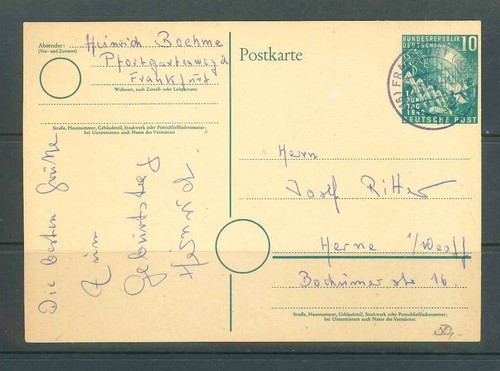 Absender:
(Vor- und Zuname)
Heinrich Boehme
Pfortgartenweg
Frankfurt
Wohnort, auch Zustell- oder Leitpostamt
Straße, Hausnummer, Gebäudeteil, Stockwerk oder Postschließfachnummer;
bei Untermietern auch Name des Vermieters
Die besten Grüße
zum
Geburtstag
Heinrich.
Postkarte
BUNDESREPUBLIK 10
DEUTSCHLAND
DEUTSCHE POST
Herrn
Josef Ritter
Herne i/Westf
Bochumer str 16.
Straße, Hausnummer, Gebäudeteil, Stockwerk oder Postschließfachnummer;
bei Untermietern auch Name des Vermieters
50,-